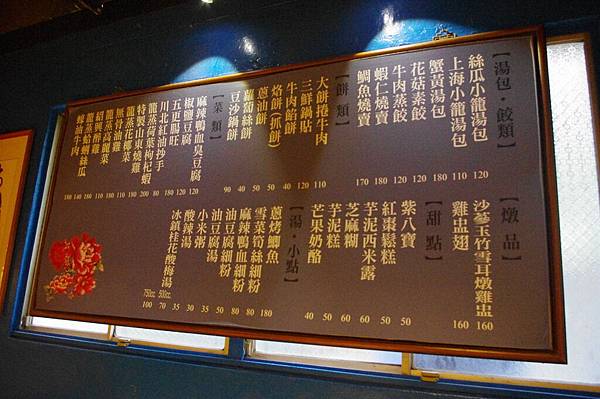 【湯包‧餃類】
絲瓜小籠湯包 120
上海小籠湯包 110
蟹黃湯包 120
花菇素餃 120
牛肉蒸餃 120
蝦仁燒賣 180
鯛魚燒賣 170
【餅類】
大餅捲牛肉 110
三鮮鍋貼 120
牛肉餡餅 40
烙餅(抓餅) 50
蔥油餅 50
蘿蔔絲餅 40
豆沙鍋餅 90
【菜類】
麻辣鴨血臭豆腐 120
椒鹽豆腐 120
五更腸旺 180
川北紅油抄手 80
籠蒸荷葉枸杞蝦 200
特製山東燒雞 180
籠蒸花椰菜 110
無骨油雞 180
籠蒸高麗菜 110
紹興醉雞 180
籠蒸蛤蜊絲瓜 140
蠔油牛肉 180
【燉品】
沙蔘玉竹雪耳燉雞盅 160
雞盅翅 160
【甜點】
紫八寶 50
紅棗鬆糕 50
芋泥西米露 60
芝麻糊 60
芋泥糕 50
芒果奶酪 40
【湯‧小點】
蔥烤鯽魚 180
雪菜筍絲細粉 80
麻辣鴨血細粉 80
油豆腐細粉 50
油豆腐湯 35
小米粥 30
酸辣湯 35
冰鎮桂花酸梅湯 500cc 70 750cc 100